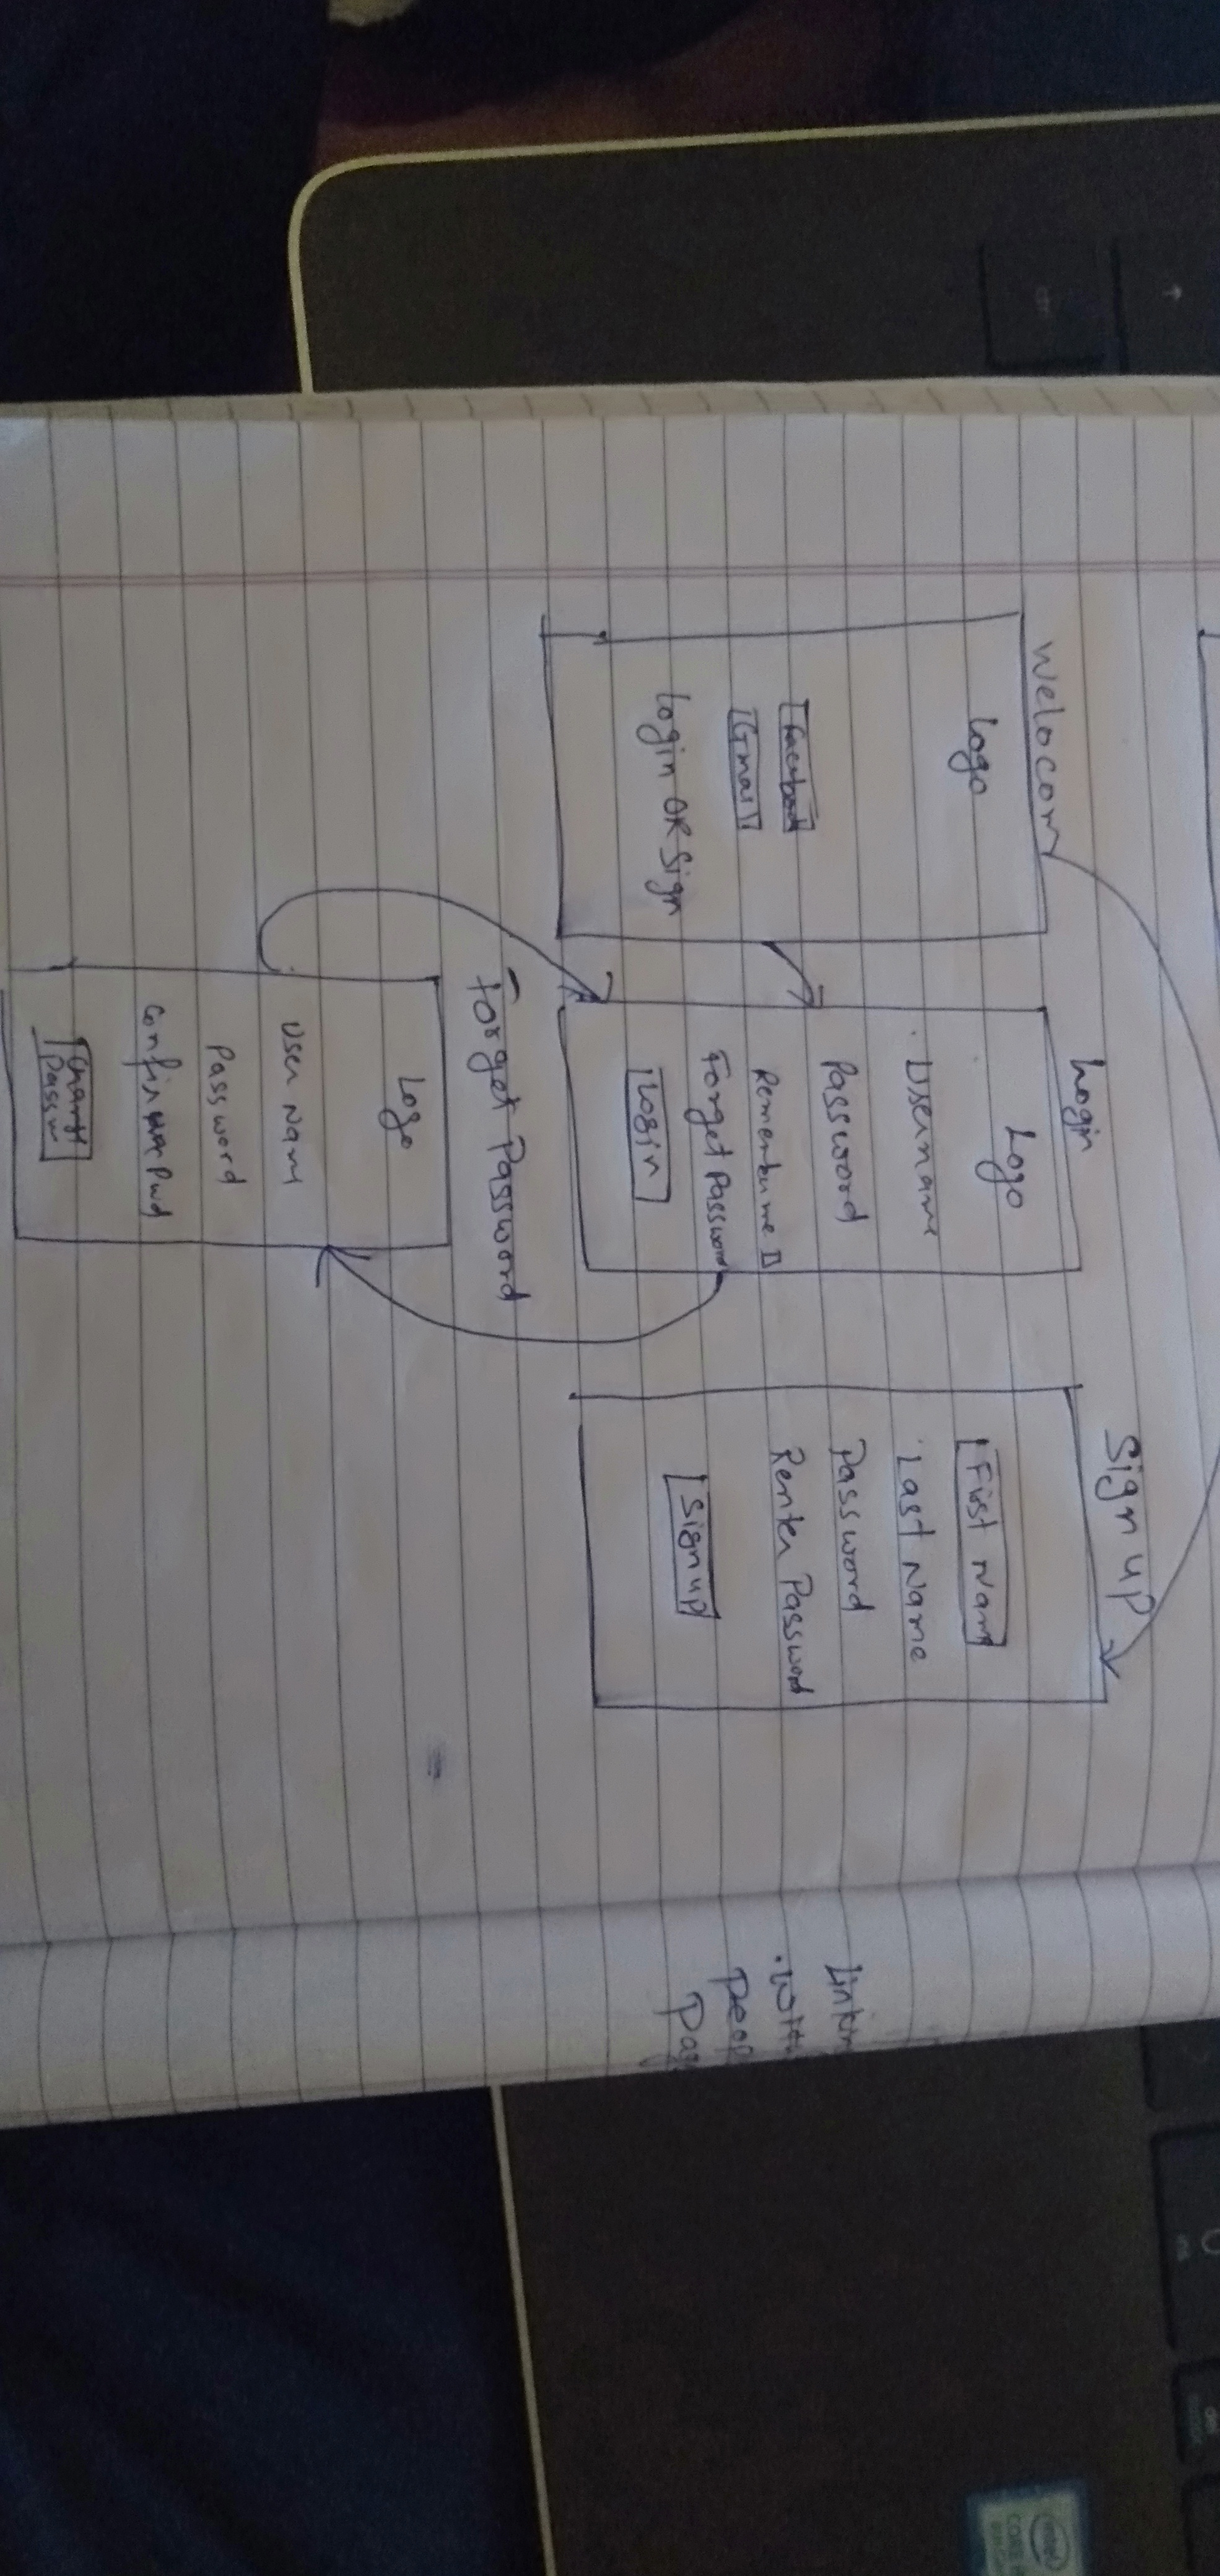 Welocom
Logo
Facebook
Gmail
Login OR Sign
Login
Logo
Username
Password
Remember me
Forget Password
Login
Sign up
First Nam
Last Name
Password
Renter Password
Sign up
Forget Password
Logo
User Nam
Password
Confirm Pwd
Change
Passw
Linkin
With
Peop
Pag
intel
CORE